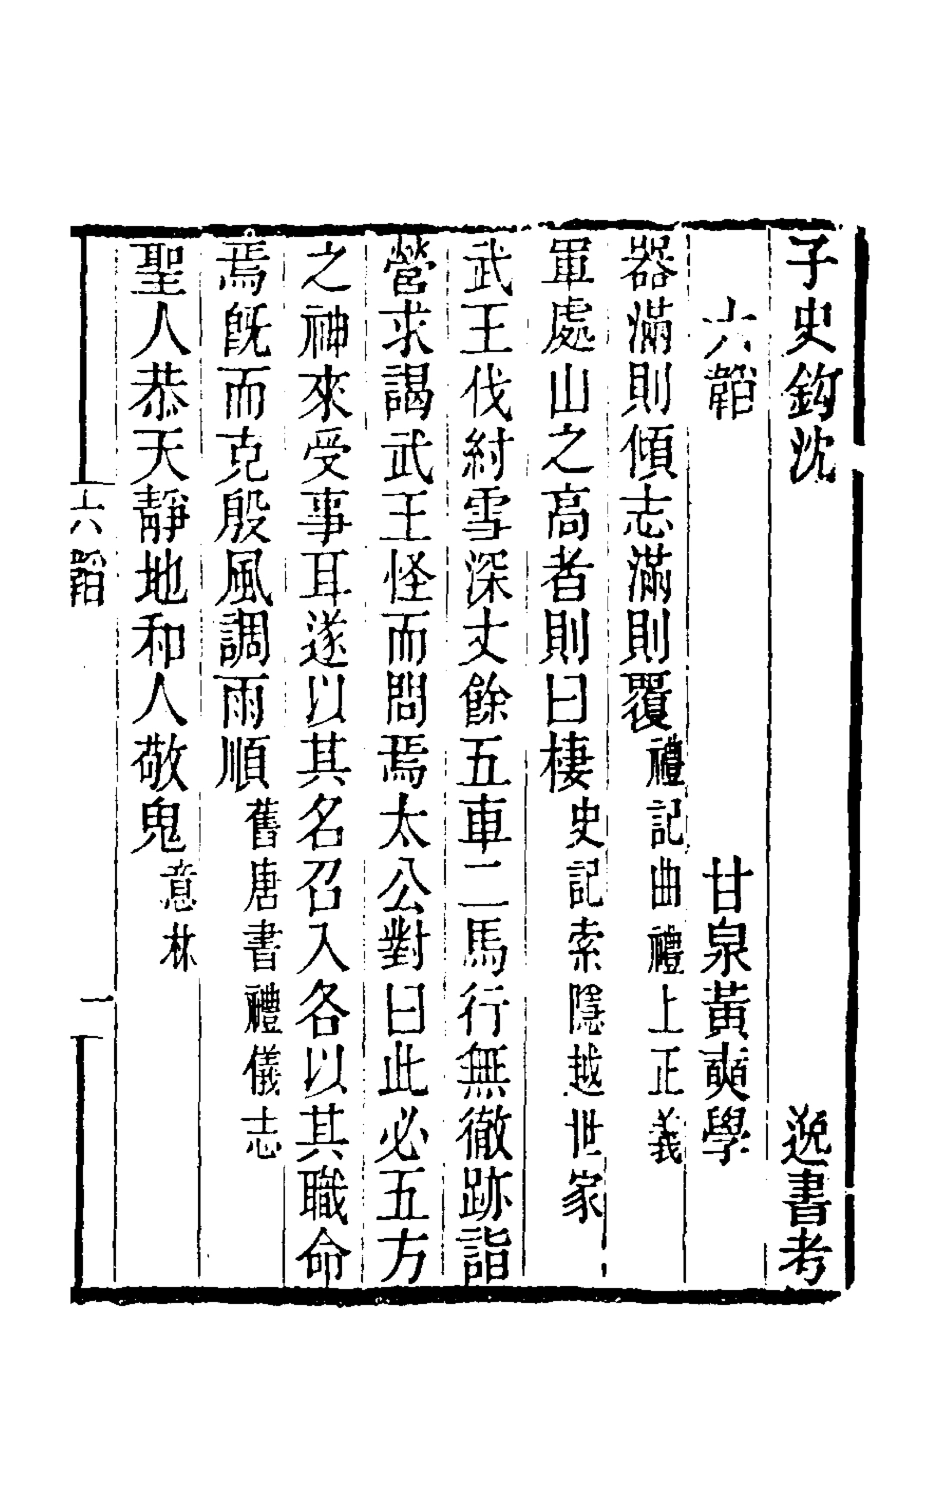 子史鈎沈　逸書考
六韜　甘泉黃奭學
器滿則傾志滿則覆禮記曲禮上正義
軍處山之高者則曰棲史記索隱越世家
武王伐紂雪深丈餘五車二馬行無徹跡詣
營求謁武王怪而問焉太公對曰此必五方
之神來受事耳遂以其名召入各以其職命
焉旣而克殷風調雨順舊唐書禮儀志
聖人恭天靜地和人敬鬼意林
六韜　一